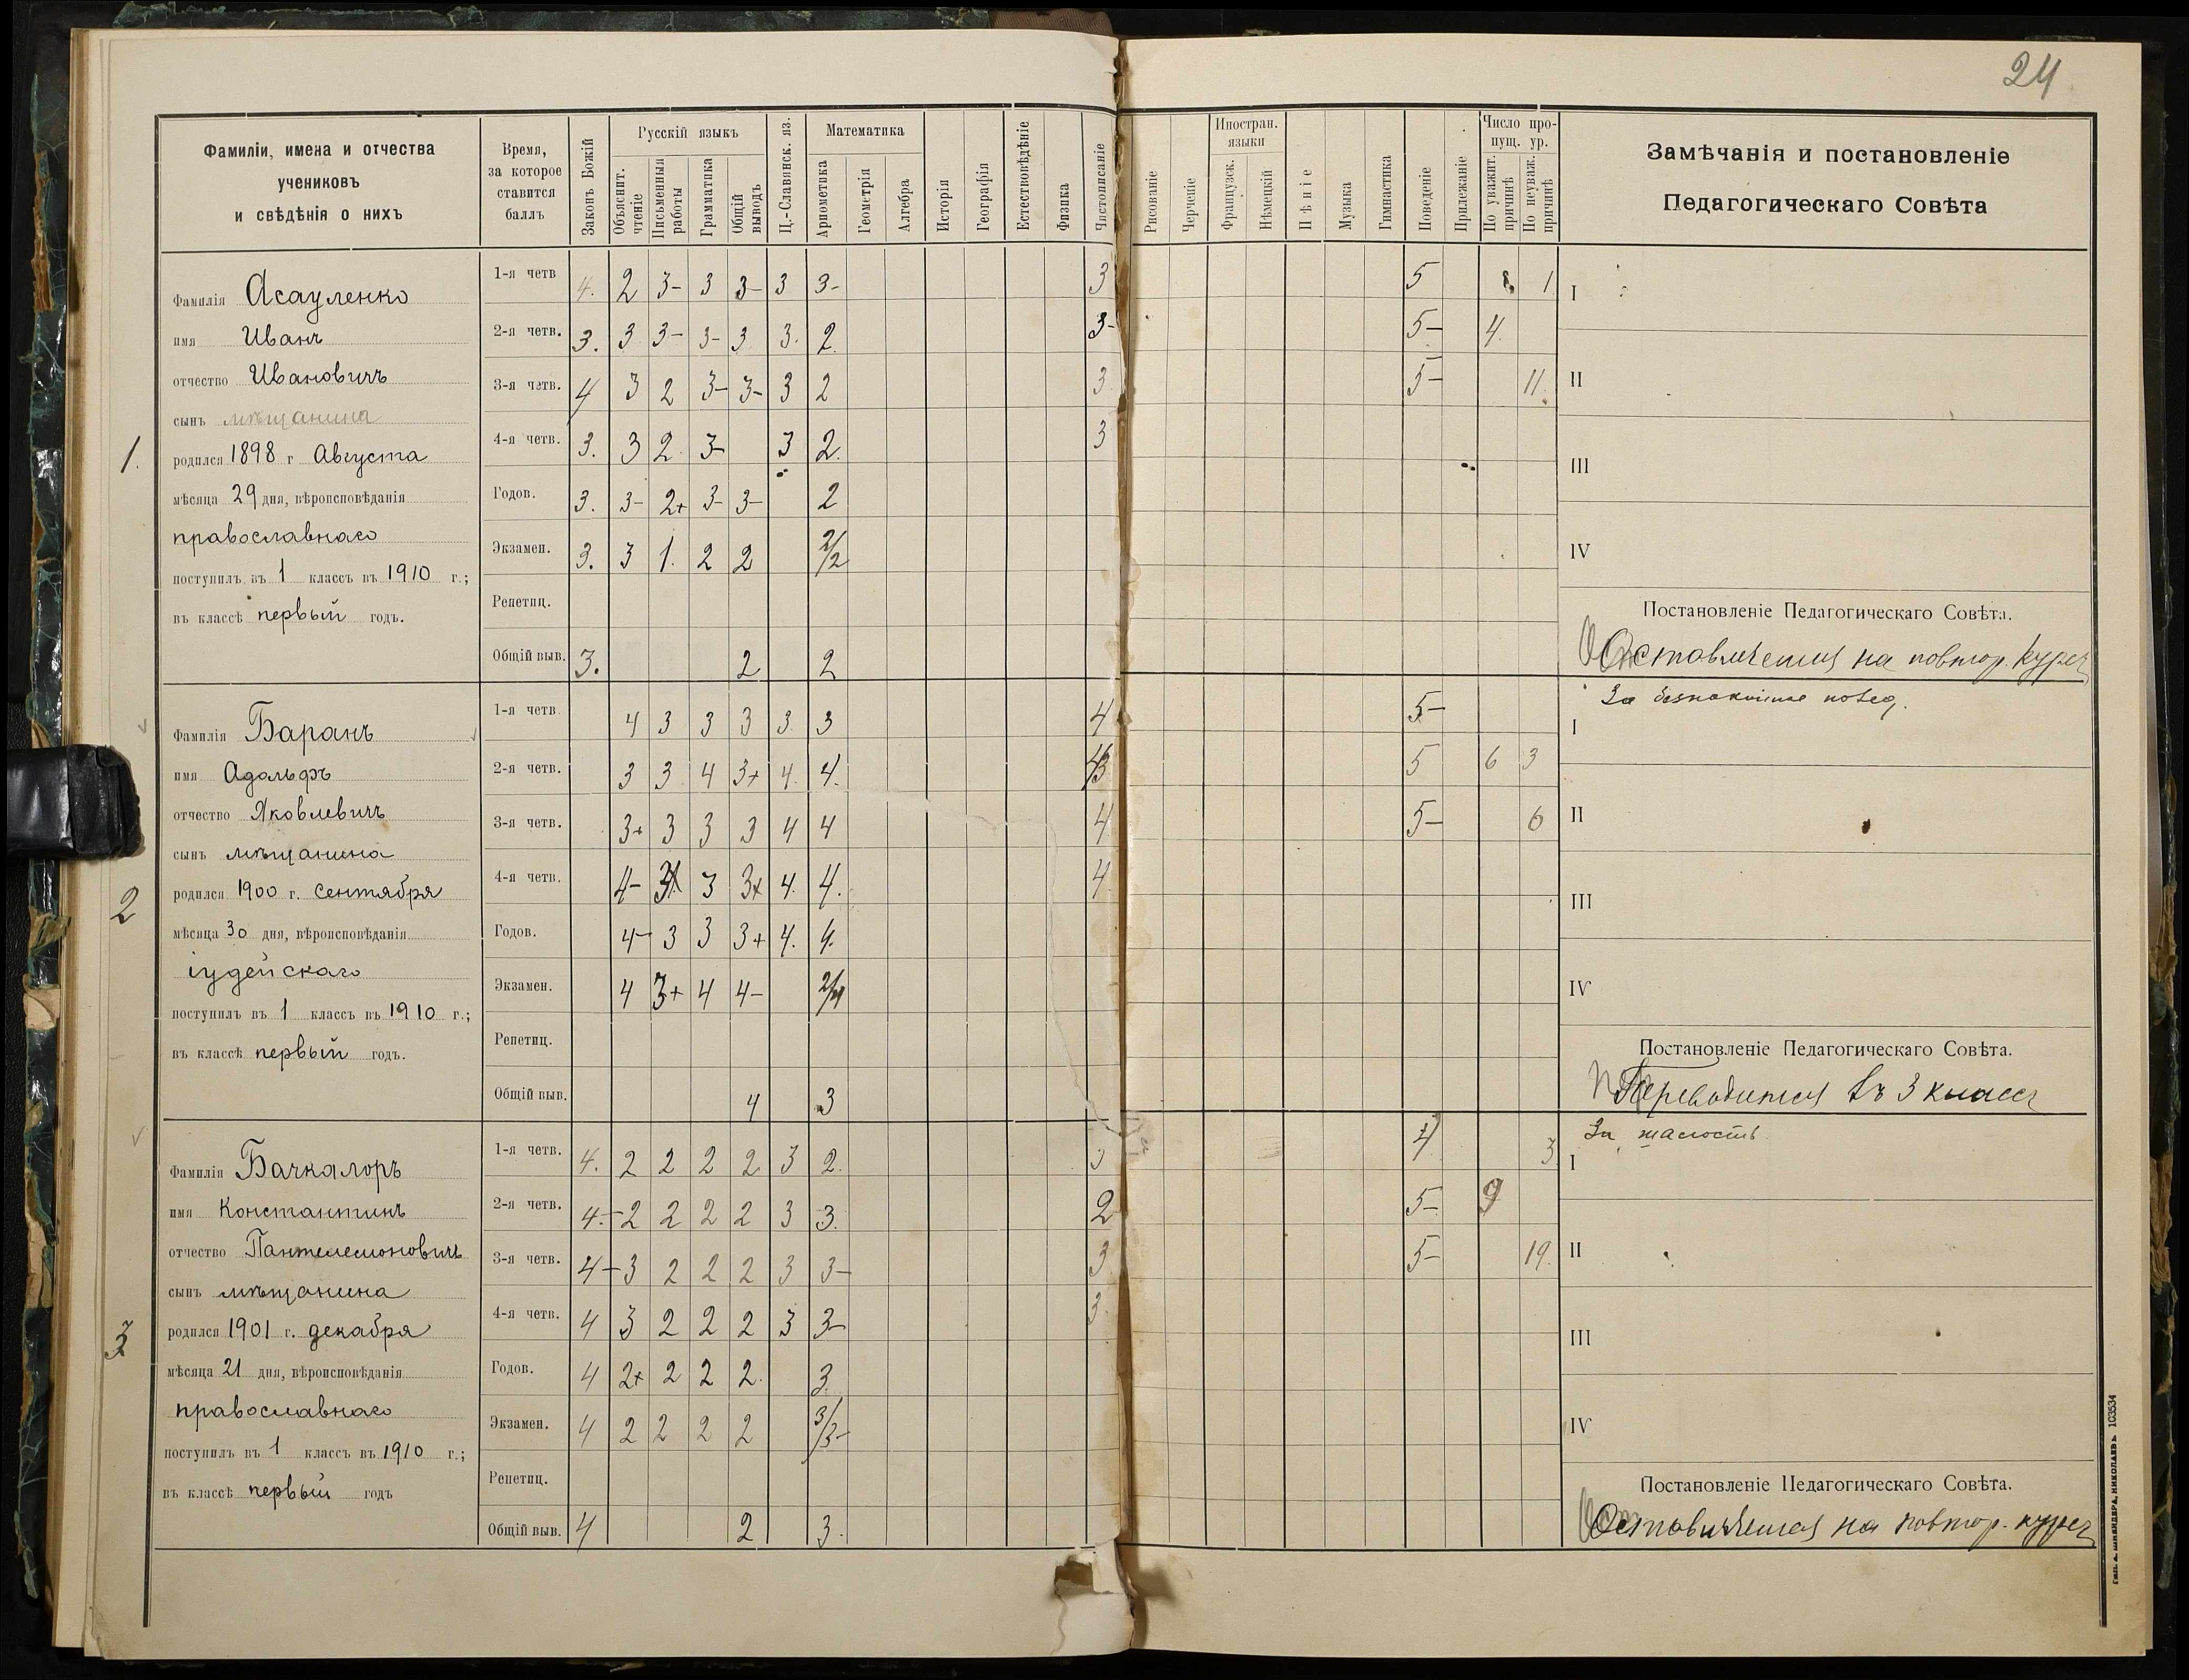 24
Фамиліи, имена и отчества
учениковъ
и свѣдѣнія о нихъ
Время,
за которое
ставится
баллъ
Законъ Божій
Русскій языкъ
Объяснит.
чтеніе
Письменныя
работы
Грамматика
Общій
выводъ
Ц.-Славянск. яз.
Математика
Ариөметика
Геометрія
Алгебра
Исторія
Географія
Естествовѣдѣніе
Физика
Чистописаніе
Рисованіе
Черченіе
Иностран.
языки
Французск.
Нѣмецкій
Пѣніе
Музыка
Гимнастика
Поведеніе
Прилежаніе
Число про-
пущ. ур.
По уважит.
причинѣ
По неуваж.
причинѣ
Замѣчанія и постановленіе
Педагогическаго Совѣта
1.
Фамилія Асауленко
имя Иванъ
отчество Ивановичъ
сынъ мѣщанина
родился 1898 г Августа
мѣсяца 29 дня, вѣроисповѣданія
православнаго
поступилъ въ 1 классъ въ 1910 г.;
въ классѣ первый годъ.
1-я четв 4. 2 3- 3 3- 3 3- 3 5 1
2-я четв. 3. 3 3- 3- 3 3. 2. 3- 5- 4.
3-я четв. 4 3 2 3- 3- 3 2 3 5- 11.
4-я четв. 3. 3 2. 3- 3 2. 3
Годов. 3. 3- 2+ 3- 3- 2
Экзамен. 3. 3 1. 2 2 2/2
Репетиц.
Общій выв. 3. 2 2
I
II
III
IV
Постановленіе Педагогическаго Совѣта.
Оставляется на повтор. курсъ
2
Фамилія Баранъ
имя Адольфъ
отчество Яковлевичъ
сынъ мѣщанина
родился 1900 г. Сентября
мѣсяца 30 дня, вѣроисповѣданія
іудейскаго
поступилъ въ 1 классъ въ 1910 г.;
въ классѣ первый годъ.
1-я четв. 4 3 3 3 3. 3 4 5-
2-я четв. 3 3 4 3+ 4. 4. 5 6 3
3-я четв. 3+ 3 3 3 4 4 4 5- 6
4-я четв. 4- 3 3+ 4. 4. 4
Годов. 4- 3 3 3+ 4. 4.
Экзамен. 4 3+ 4 4- 2/4
Репетиц.
Общій выв. 4 3
За безпокойное повед.
I
II
III
IV
Постановленіе Педагогическаго Совѣта.
Переводится въ 3 классъ
3
Фамилія Бачкалоръ
имя Константинъ
отчество Пантелеимоновичъ
сынъ мѣщанина
родился 1901 г. декабря
мѣсяца 21 дня, вѣроисповѣданія
православнаго
поступилъ въ 1 классъ въ 1910 г.;
въ классѣ первый годъ
1-я четв. 4. 2 2 2 2 3 2. 3 4 3
2-я четв. 4.- 2 2 2 2 3 3. 2 5- 9
3-я четв. 4- 3 2 2 2 3 3- 3 5- 19.
4-я четв. 4 3 2 2 2 3 3- 3
Годов. 4 2+ 2 2 2. 3.
Экзамен. 4 2 2 2 2 3/3-
Репетиц.
Общій выв. 4 2 3.
За шалость
I
II
III
IV
Постановленіе Педагогическаго Совѣта.
Оставляется на повтор. курсъ
Тип. А. Шнейдера, Николаевъ 103534